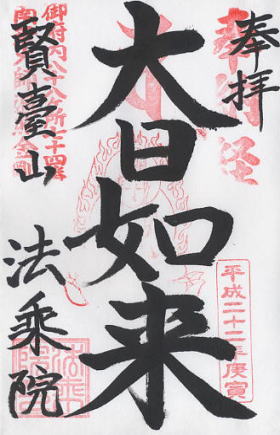 奉拝
奉納経
大日如来
平成二十二年庚寅
御府内八十八ヶ所七十四番
賢臺山
法乗院